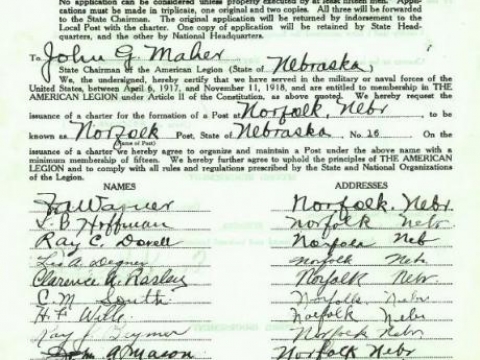 No application can be considered unless properly executed by at least fifteen men. Appli-
cations must be made in triplicate, one original and two copies. All three will be forwarded
to the State Chairman. The original application will be returned by indorsement to the
Local Post with the charter. One copy of application will be retained by State Head-
quarters, and the other by National Headquarters.
To John G. Maher
State Chairman of the American Legion (State of Nebraska)
We, the undersigned, hereby certify that we have served in the military or naval forces of the
United States, between April 6, 1917, and November 11, 1918, and are entitled to membership in THE
AMERICAN LEGION under Article II of the Constitution, as above quoted. We hereby request the
issuance of a charter for the formation of a Post at Norfolk, Nebr, to be
known as Norfolk Post, State of Nebraska No. 16 On the
(Name of Post)
issuance of a charter we hereby agree to organize and maintain a Post under the above name with a
minimum membership of fifteen. We hereby further agree to uphold the principles of THE AMERICAN
LEGION and to comply with all rules and regulations prescribed by the State and National Organizations
of the Legion.
NAMES ADDRESSES
Warner Norfolk. Nebr.
B. Hoffman Norfolk Nebr.
Ray C. Norfolk Neb
A. Degner Norfolk Nebr
Clarence A. Rasley Norfolk Nebr.
C. M. South Norfolk, Nebr
H. F. Wille Norfolk Nebr
Ray J. Norfolk Nebr.
John A Mason Norfolk Nebr